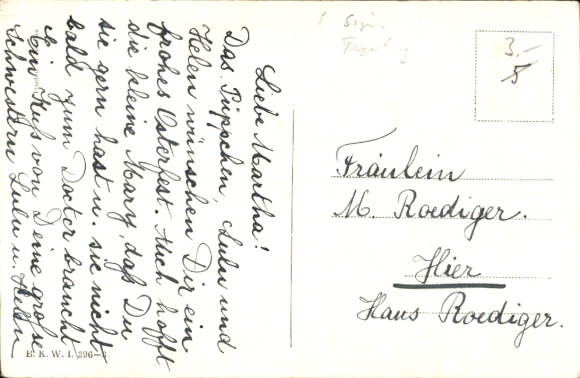 Liebe Martha!
Das Püppchen, Lulu und
Helen wünschen Dir ein
frohes Osterfest. Auch hofft
die kleine Mary, daß Du
sie gern hast u. sie nicht
bald zum Doctor braucht
Ein Kuß von Deine große
Schwestern Lulu u. Helen
B. K. W. I. 396-
3.-
Fräulein
M. Roediger.
Hier
Haus Roediger.